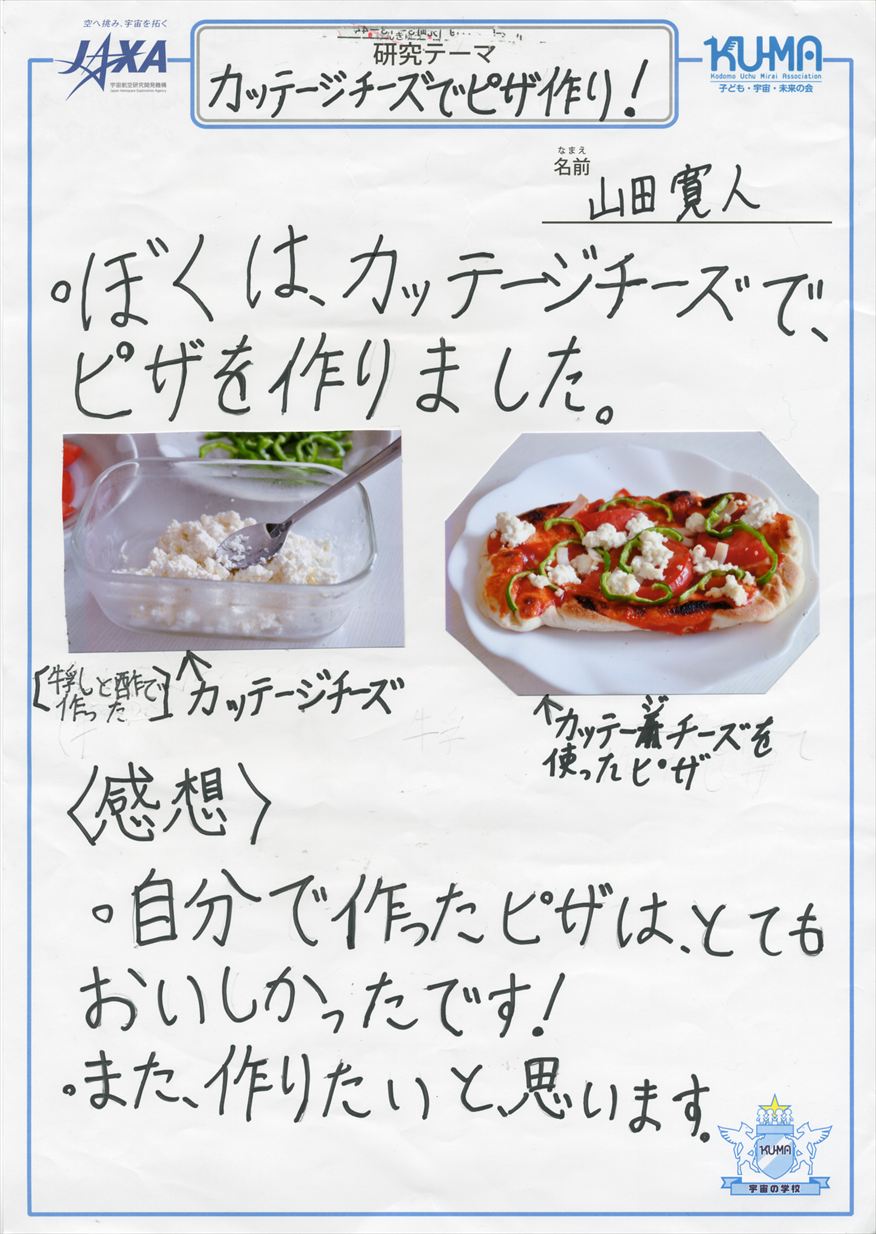 空へ挑み、宇宙を拓く
JAXA
宇宙航空研究開発機構
Japan Aerospace Exploration Agency
研究テーマ
カッテージチーズでピザ作り!
KU-MA
Kodomo Uchu Mirai Association
子ども・宇宙・未来の会
なまえ
名前
山田寛人
・ぼくは、カッテージチーズで、
ピザを作りました。
[牛乳しと酢で
作った]
↑カッテージチーズ
↑カッテージチーズを
使ったピザ
〈感想〉
・自分で作ったピザは、とても
おいしかったです!
・また、作りたいと、思います。
KU-MA
宇宙の学校